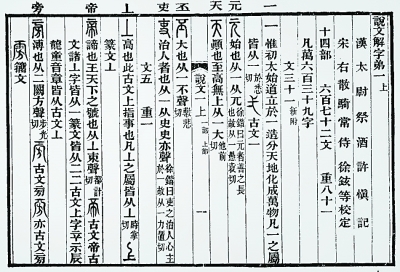 一
元
天
丕
吏
丄
帝
旁
說文解字弟一 上
漢太尉祭酒許愼記
宋右散騎常侍徐鉉等校定
十四部 六百七十二文 重八十一
凡萬六百三十九字
文三十一 新附
一 惟初太始道立於一造分天地化成萬物凡一之屬
皆从一 於悉切 弌 古文一
元 始也从一从兀 徐鍇曰元者善之長也故从一 愚袁切
天 顚也至高無上从一大 他前切
說文一上 一部 丄部 一
丕 大也从一不聲 敷悲切
吏 治人者也从一从史史亦聲 徐鍇曰吏之治人心主於一故从一 力置切
文五 重一
丄 高也此古文上指事也凡丄之屬皆从丄 時掌切 上
篆文丄
帝 諦也王天下之號也从丄朿聲 都計切 古文帝古
文諸丄字皆从一篆文皆从二二古文上字䇂示辰
龍童音章皆从古文丄
旁 溥也从二闕方聲 步光切 古文㫄 亦古文㫄
籒文